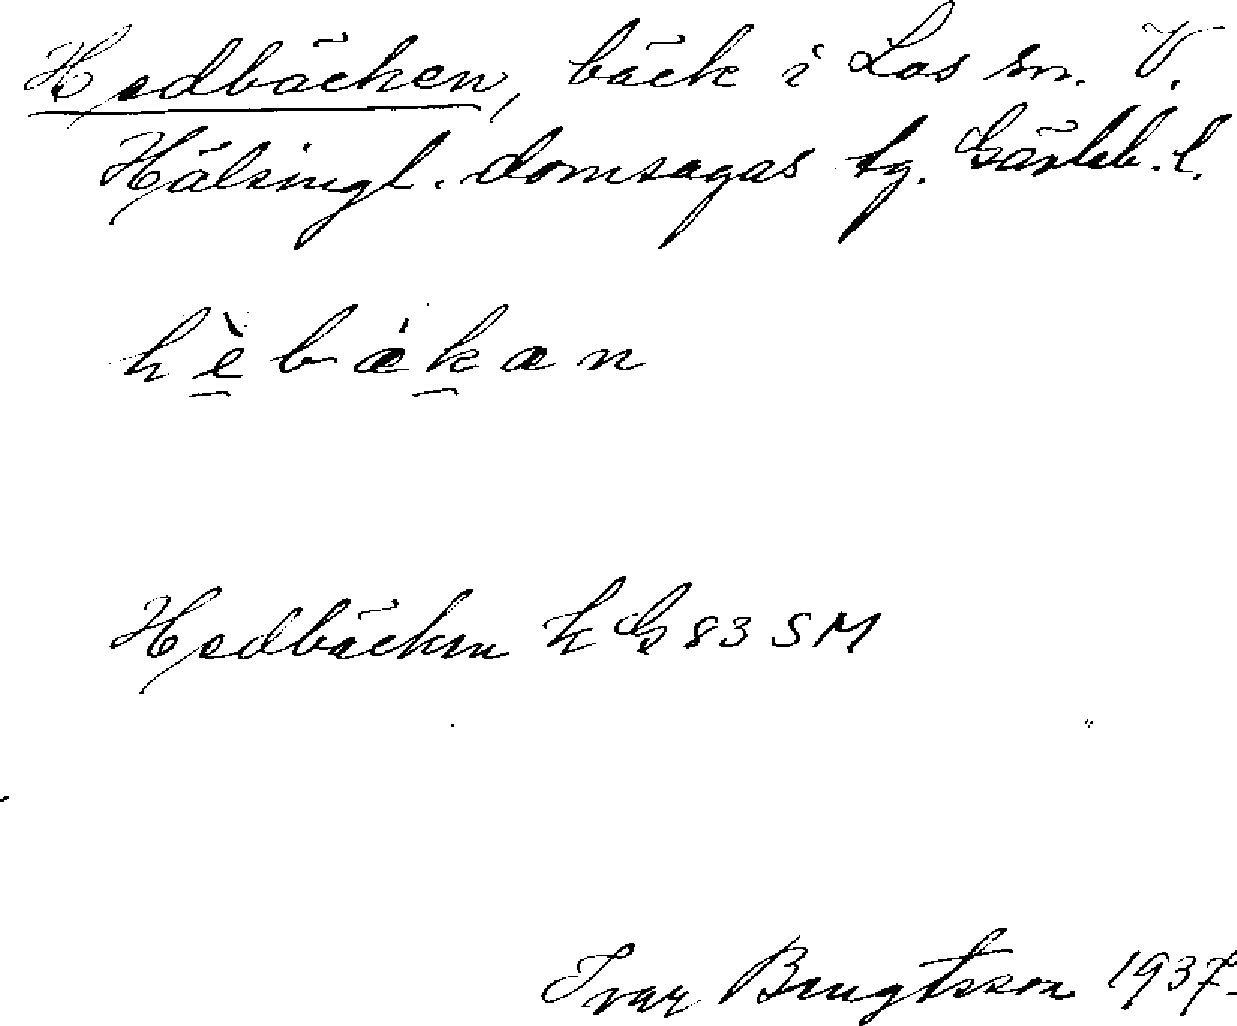 Hedbäcken, bäck i Los sn. V.
Hälsingl. domsagas tg. Gävleb. l.
hèbǽkan
Hedbäcken kG 83 SM
Ivar Bengtsson 1937.